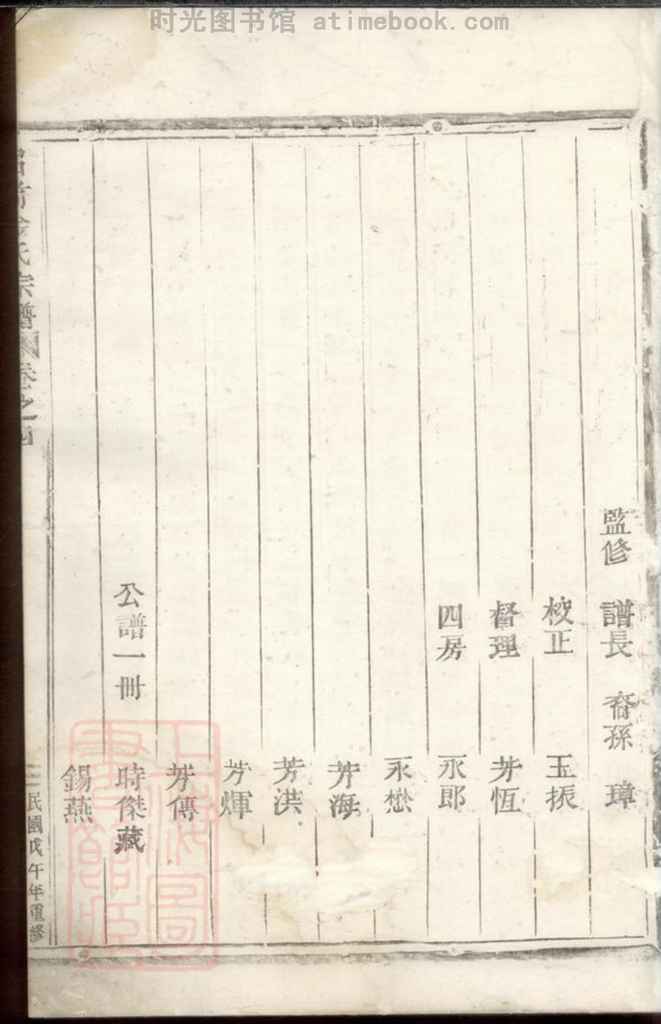 时光图书馆 atimebook.com
監修 譜長 裔孫 璋
校正 玉振
督理 芳恆
四房 永郎
永懋
芳海
芳洪
芳煇
芳傳
公譜一冊 時傑藏
錫燕
氏宗譜 卷之四
民國戊午年重修